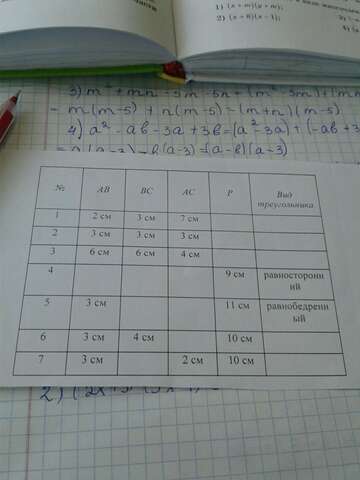 1) (x + m)(y + m);
2) (x + 8)(x − 1);
= m(m−5) + n(m−5) = (m+n)(m−5)
4) a² − ab − 3a + 3b = (a² − 3a) + (−ab + 3
№ AB BC AC P Вид треугольника
1 2 см 3 см 7 см
2 3 см 3 см 3 см
3 6 см 6 см 4 см
4 9 см равносторонн
ий
5 3 см 11 см равнобедрен
ный
6 3 см 4 см 10 см
7 3 см 2 см 10 см